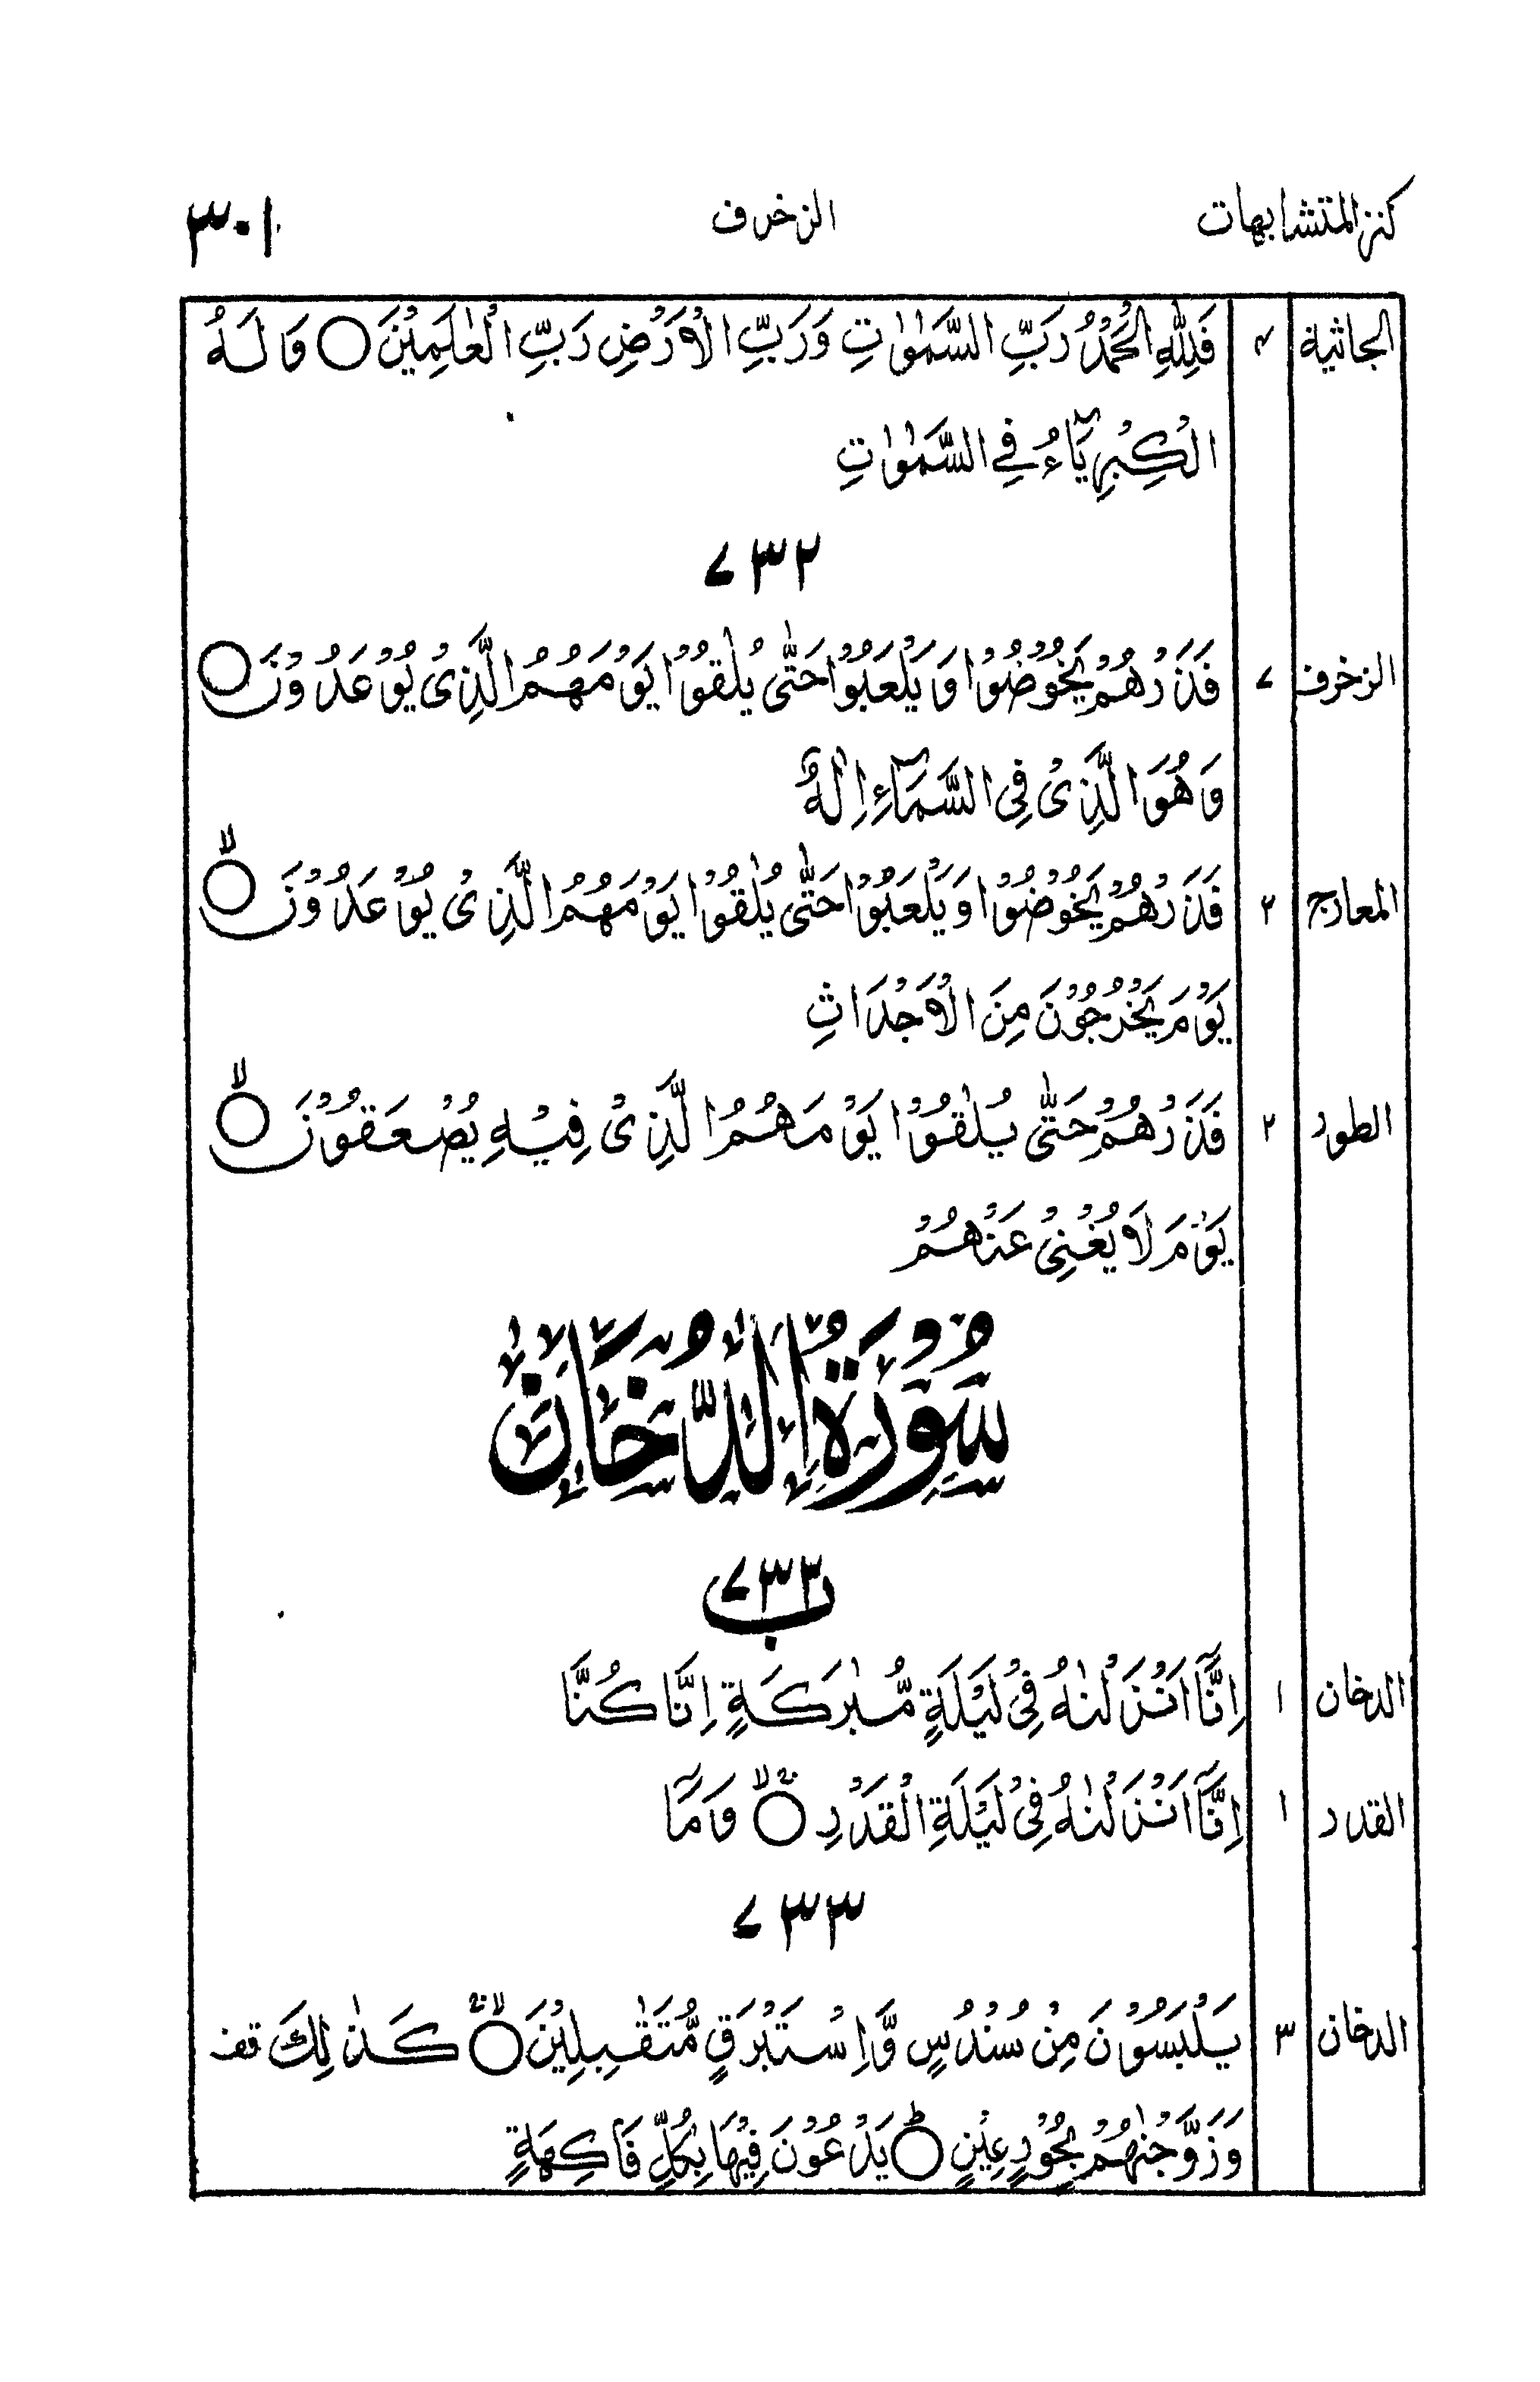 كنز المتشابهات الزخرف ٣٠١
الجاثية ٤ فَلِلّٰهِ الْحَمْدُ رَبِّ السَّمٰوٰتِ وَرَبِّ الْاَرْضِ رَبِّ الْعٰلَمِيْنَ ○ وَلَهُ
الْكِبْرِيَآءُ فِي السَّمٰوٰتِ
٧٣٢
الزخرف ٧ فَذَرْهُمْ يَخُوْضُوْا وَيَلْعَبُوْا حَتّٰى يُلٰقُوْا يَوْمَهُمُ الَّذِىْ يُوْعَدُوْنَ ○
وَهُوَ الَّذِىْ فِى السَّمَآءِ اِلٰهٌ
المعارج ٢ فَذَرْهُمْ يَخُوْضُوْا وَيَلْعَبُوْا حَتّٰى يُلٰقُوْا يَوْمَهُمُ الَّذِىْ يُوْعَدُوْنَ ○ لا
يَوْمَ يَخْرُجُوْنَ مِنَ الْاَجْدَاثِ
الطور ٢ فَذَرْهُمْ حَتّٰى يُلٰقُوْا يَوْمَهُمُ الَّذِىْ فِيْهِ يُصْعَقُوْنَ ○ لا
يَوْمَ لَا يُغْنِىْ عَنْهُمْ
سُوْرَةُ الدُّخَانِ
٧٣٢ ب
الدخان ١ اِنَّآ اَنْزَلْنٰهُ فِىْ لَيْلَةٍ مُّبٰرَكَةٍ اِنَّا كُنَّا
القدر ١ اِنَّآ اَنْزَلْنٰهُ فِىْ لَيْلَةِ الْقَدْرِ ○ وَمَآ
٧٣٣
الدخان ٣ يَلْبَسُوْنَ مِنْ سُنْدُسٍ وَّاِسْتَبْرَقٍ مُّتَقٰبِلِيْنَ ○ كَذٰلِكَ قف
وَزَوَّجْنٰهُمْ بِحُوْرٍ عِيْنٍ ○ يَدْعُوْنَ فِيْهَا بِكُلِّ فَاكِهَةٍ